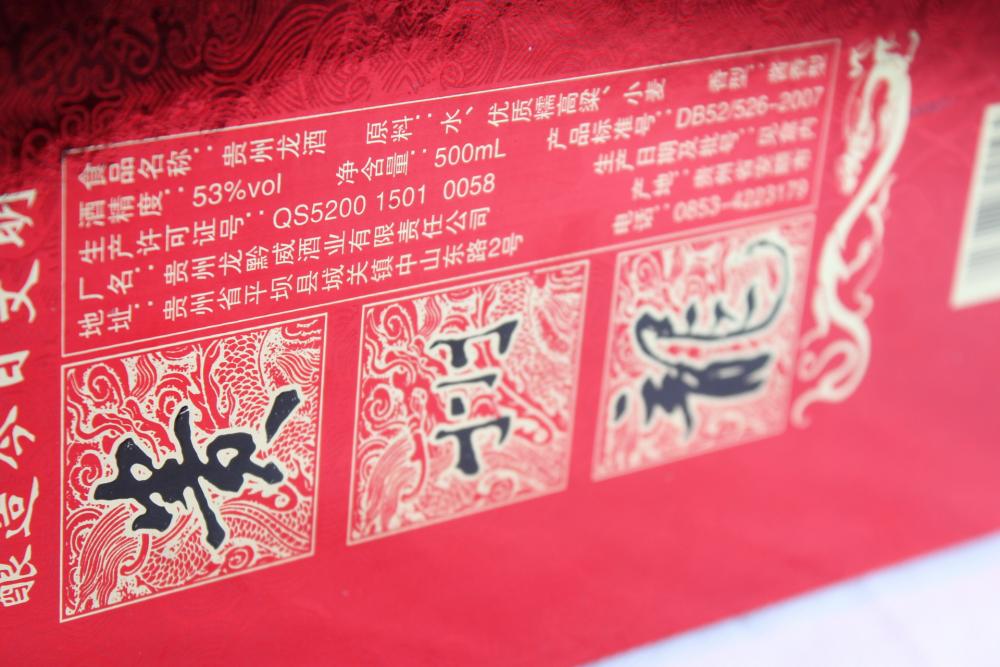 食品名称：贵州龙酒
原料：水、优质糯高粱、小麦
香型：酱香型
酒精度：53%vol
净含量：500mL
产品标准号：DB52/526-2007
生产许可证号：QS5200 1501 0058
生产日期及批号：见盒内
厂名：贵州龙黔威酒业有限责任公司
产地：贵州省安顺市
地址：贵州省平坝县城关镇中山东路2号
电话：0853-4223179
贵州龙
酿造今日文明